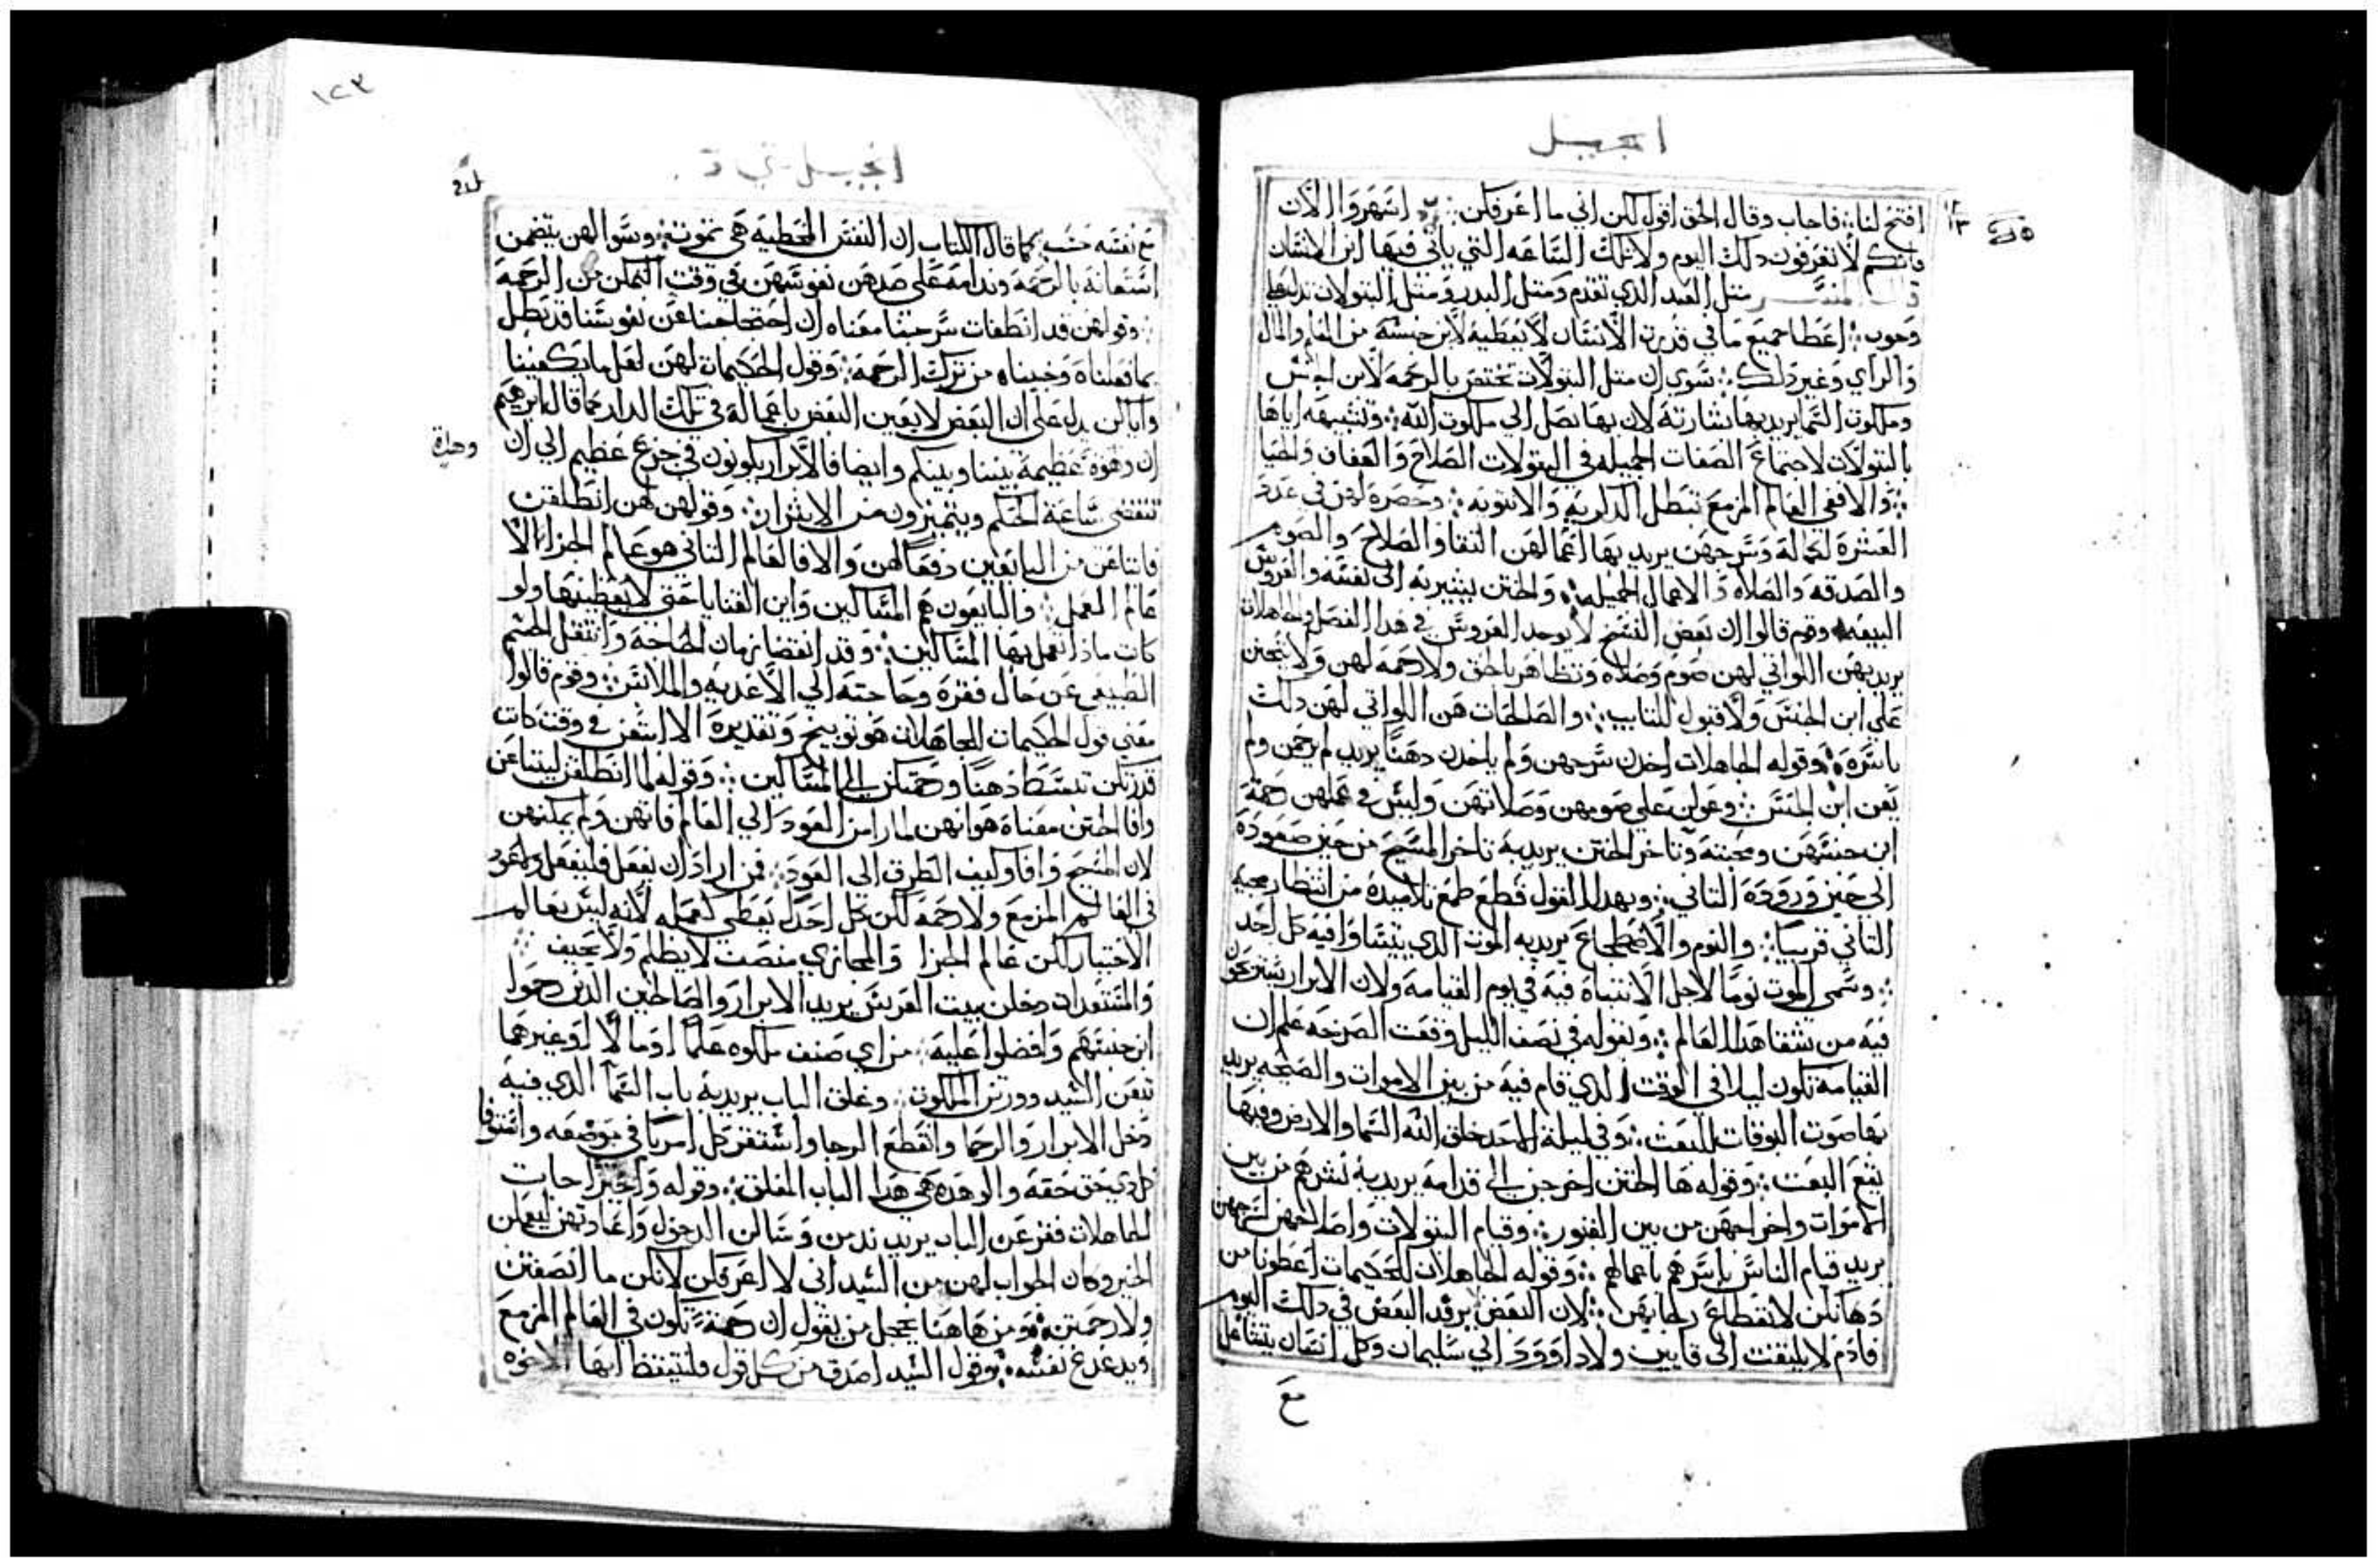 انجيل
افتح لنا فاجاب وقال الحق اقول لكن اني ما اعرفكن اسهروا الان
فانكم لا تعرفون دلك اليوم ولا تلك الساعه التي ياتي فيها ابن الانسان
مثل العبد الدي تقدم ومثل البدر ومثل البتولات
اعطا جميع ما في قدرة الانسان لا بن جنسه من والمال
والراي وغير دلك سوي ان مثل البتولات تختص بالرحمه لابن الجنس
وملكوت السما يريد بها بشارته لان بها نصل الي ملكوت الله وتشبيهه اياها
بالبتولات لاجتماع الصفات الجميله في البتولات الصلاح والعفاف والحيا
والا ففي العالم المزمع تبطل الدكريه والانوثه وحصره لهن في عدد
العشرة لكماله وسرجهن يريد بها اعمالهن التقا والصلاح والصوم
والصدقه والصلاه والاعمال الجميله والختن يشير به الي نفسه والعروس
البيعه وقوم قالوا ان بعض النسخ لا يوجد العروس في هدا الفصل والجاهلات
يريد بهن اللواتي لهن صوم وصلاه وتظاهر بالحق ولا رحمه لهن ولا تحنن
علي ابن الجنس ولا قبول للتايب والصالحات هن اللواتي لهن دلك
باسره وقوله الجاهلات اخدن سرجهن ولم ياخدن دهنا يريد لم يرحمن ولم
يعن ابن الجنس وعولن علي صومهن وصلاتهن وليس في عملهن رحمة
ابن جنسهن ومحبته وتاخر الختن يريد به تاخر المسيح من حين صعوده
الي حين وروده التاني وبهدا القول قطع طمع تلاميده من انتظار مجيه
التاني قريبا والنوم والاضطجاع يريد به الموت الدي يتساوا فيه كل احد
وسمي الموت نوما لاجل الانتباه فيه في يوم القيامه ولان الابرار يستريحون
فيه من شقا هدا العالم وبقوله في نصف الليل وقعت الصرخه علم ان
القيامه تكون ليلا في الوقت الدي قام فيه من بين الاموات والصيحه يريد
بها صوت البوقات للبعث وفي ليلة الاحد خلق الله السما والارض وفيها
يقع البعث وقوله ها الختن اخرجن الي قدامه يريد به نشرهم من بين
الاموات واخراجهن من بين القبور وقيام البتولات واصلاحهن لسرجهن
يريد قيام الناس باسرهم باعمالهم وقوله الجاهلات للحكيمات اعطونا من
دهانكن لانقطاع رجايهن لان البعض يرفد البعض في دلك اليوم
فادم لا يلتفت الي قايين ولا داوود الي سليمان وكل انسان يتشاغل
مع
١٢٣
انجيل متي
مع نفسه حسب كما قال الكتاب ان النفس المخطيه هي تموت وسوالهن يتضمن
استعانة بالرحمه وندامه علي صدهن نفوسهن في وقت التمكن من الرحمه
وقولهن قد انطفات سرجنا معناه ان احتجاجنا عن نفوسنا قد بطل
بما فعلناه وجنيناه من ترك الرحمه وقول الحكيمات لهن لعل ما يكفينا
واياكن يدل علي ان البعض لا يعين البعض باعماله في تلك الدار كما قال ابرهيم
ان وهوة عظيمة بيننا وبينكم وايضا فالابرار يكونون في جزع عظيم الي ان
وهدة
تنقضي ساعة الحكم ويتميزون من الاشرار وقولهن لهن انطلقن
فابتاعن من البايعين دفعا لهن والا فالعالم التاني هو عالم الجزا لا
عالم العمل والبايعون هم المساكين واين القنايا حتي لا يعطينها ولو
كانت مادا تعمل بها المساكين وقد انقضا زمان الحاجة وانتقل الجسم
الطبيعي عن حال فقره وحاجته الي الاغديه والملابس وقوم قالوا
معني قول الحكيمات للجاهلات هو توبيخ وتقديره الا ابتعتن في وقت كانت
قدرتكن تبسط دهنا ورحمتكن الي المساكين وقوله لما انطلقن ليبتاعن
وافا الختن معناه هو انهن لما رامن العود الي العالم فاتهن ولم يمكنهن
لان المسيح وافا وكيف الطرق الي العود فمن اراد ان يفعل فليفعل
في العالم المزمع ولا رحمة لكن كل احد يعطي كعمله لانه ليس بعالم
الاختيار لكن عالم الجزا والمجازي منصف لا يظلم ولا يحيف
والمستعدات دخلن بيت العريس يريد الابرار والصالحين الدين رحموا
ابن جنسهم وافضلوا عليه من اي صنف ملكوه علما او مالا او غيرهما
تبعن السيد وورثن الملكوت وغلق الباب يريد به باب السما الدي فيه
دخل الابرار والرحما وانقطع الرجا واستقر كل امر في موضعه واستوفا
كل دي حق حقه والوهده هي هدا الباب المغلق وقوله واخيرا جات
الجاهلات فقرعن الباب يريد ندمن وسالن الدخول واعادتهن ليعملن
الخير وكان الجواب لهن من السيد اني لا اعرفكن لانكن ما انصفتن
ولا رحمتن ومن هاهنا يخجل من يقول ان رحمة تكون في العالم المزمع
ويدغدغ نفسه وقول السيد اصدق من كل قول فلنتيقظ ايها الاخوه